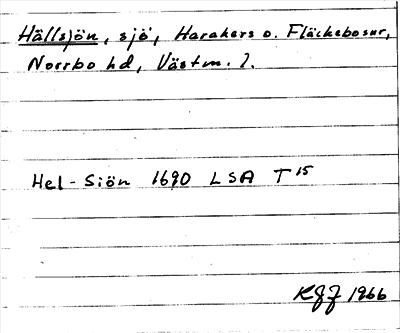 Hällsjön, sjö, Harakers o. Fläckebo snr,
Norrbo hd, Västm. l.
Hel-Siön 1690 LSA T 15
1966